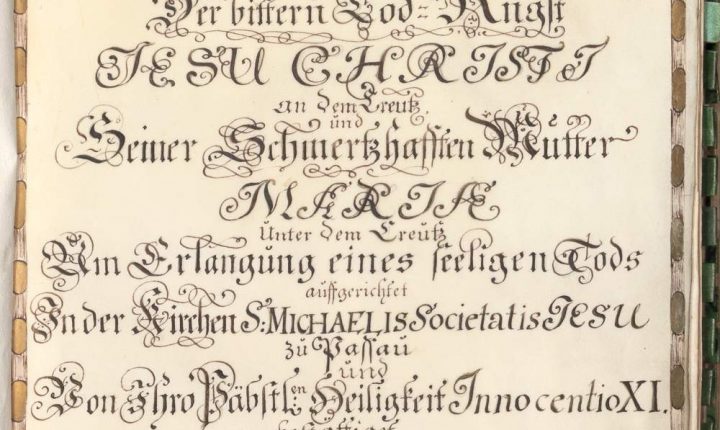 Der bittern Tod-Angst
JESU CHRISTI
an dem Creutz
und
Seiner Schmertzhafften Mutter
MARIÆ
Unter dem Creutz
Um Erlangung eines seeligen Tods
auffgerichtet
In der Kirchen S: MICHAELIS Societatis JESU
zu Passau
und
Von Ihro Päbstl:en Heiligkeit Innocentio XI.